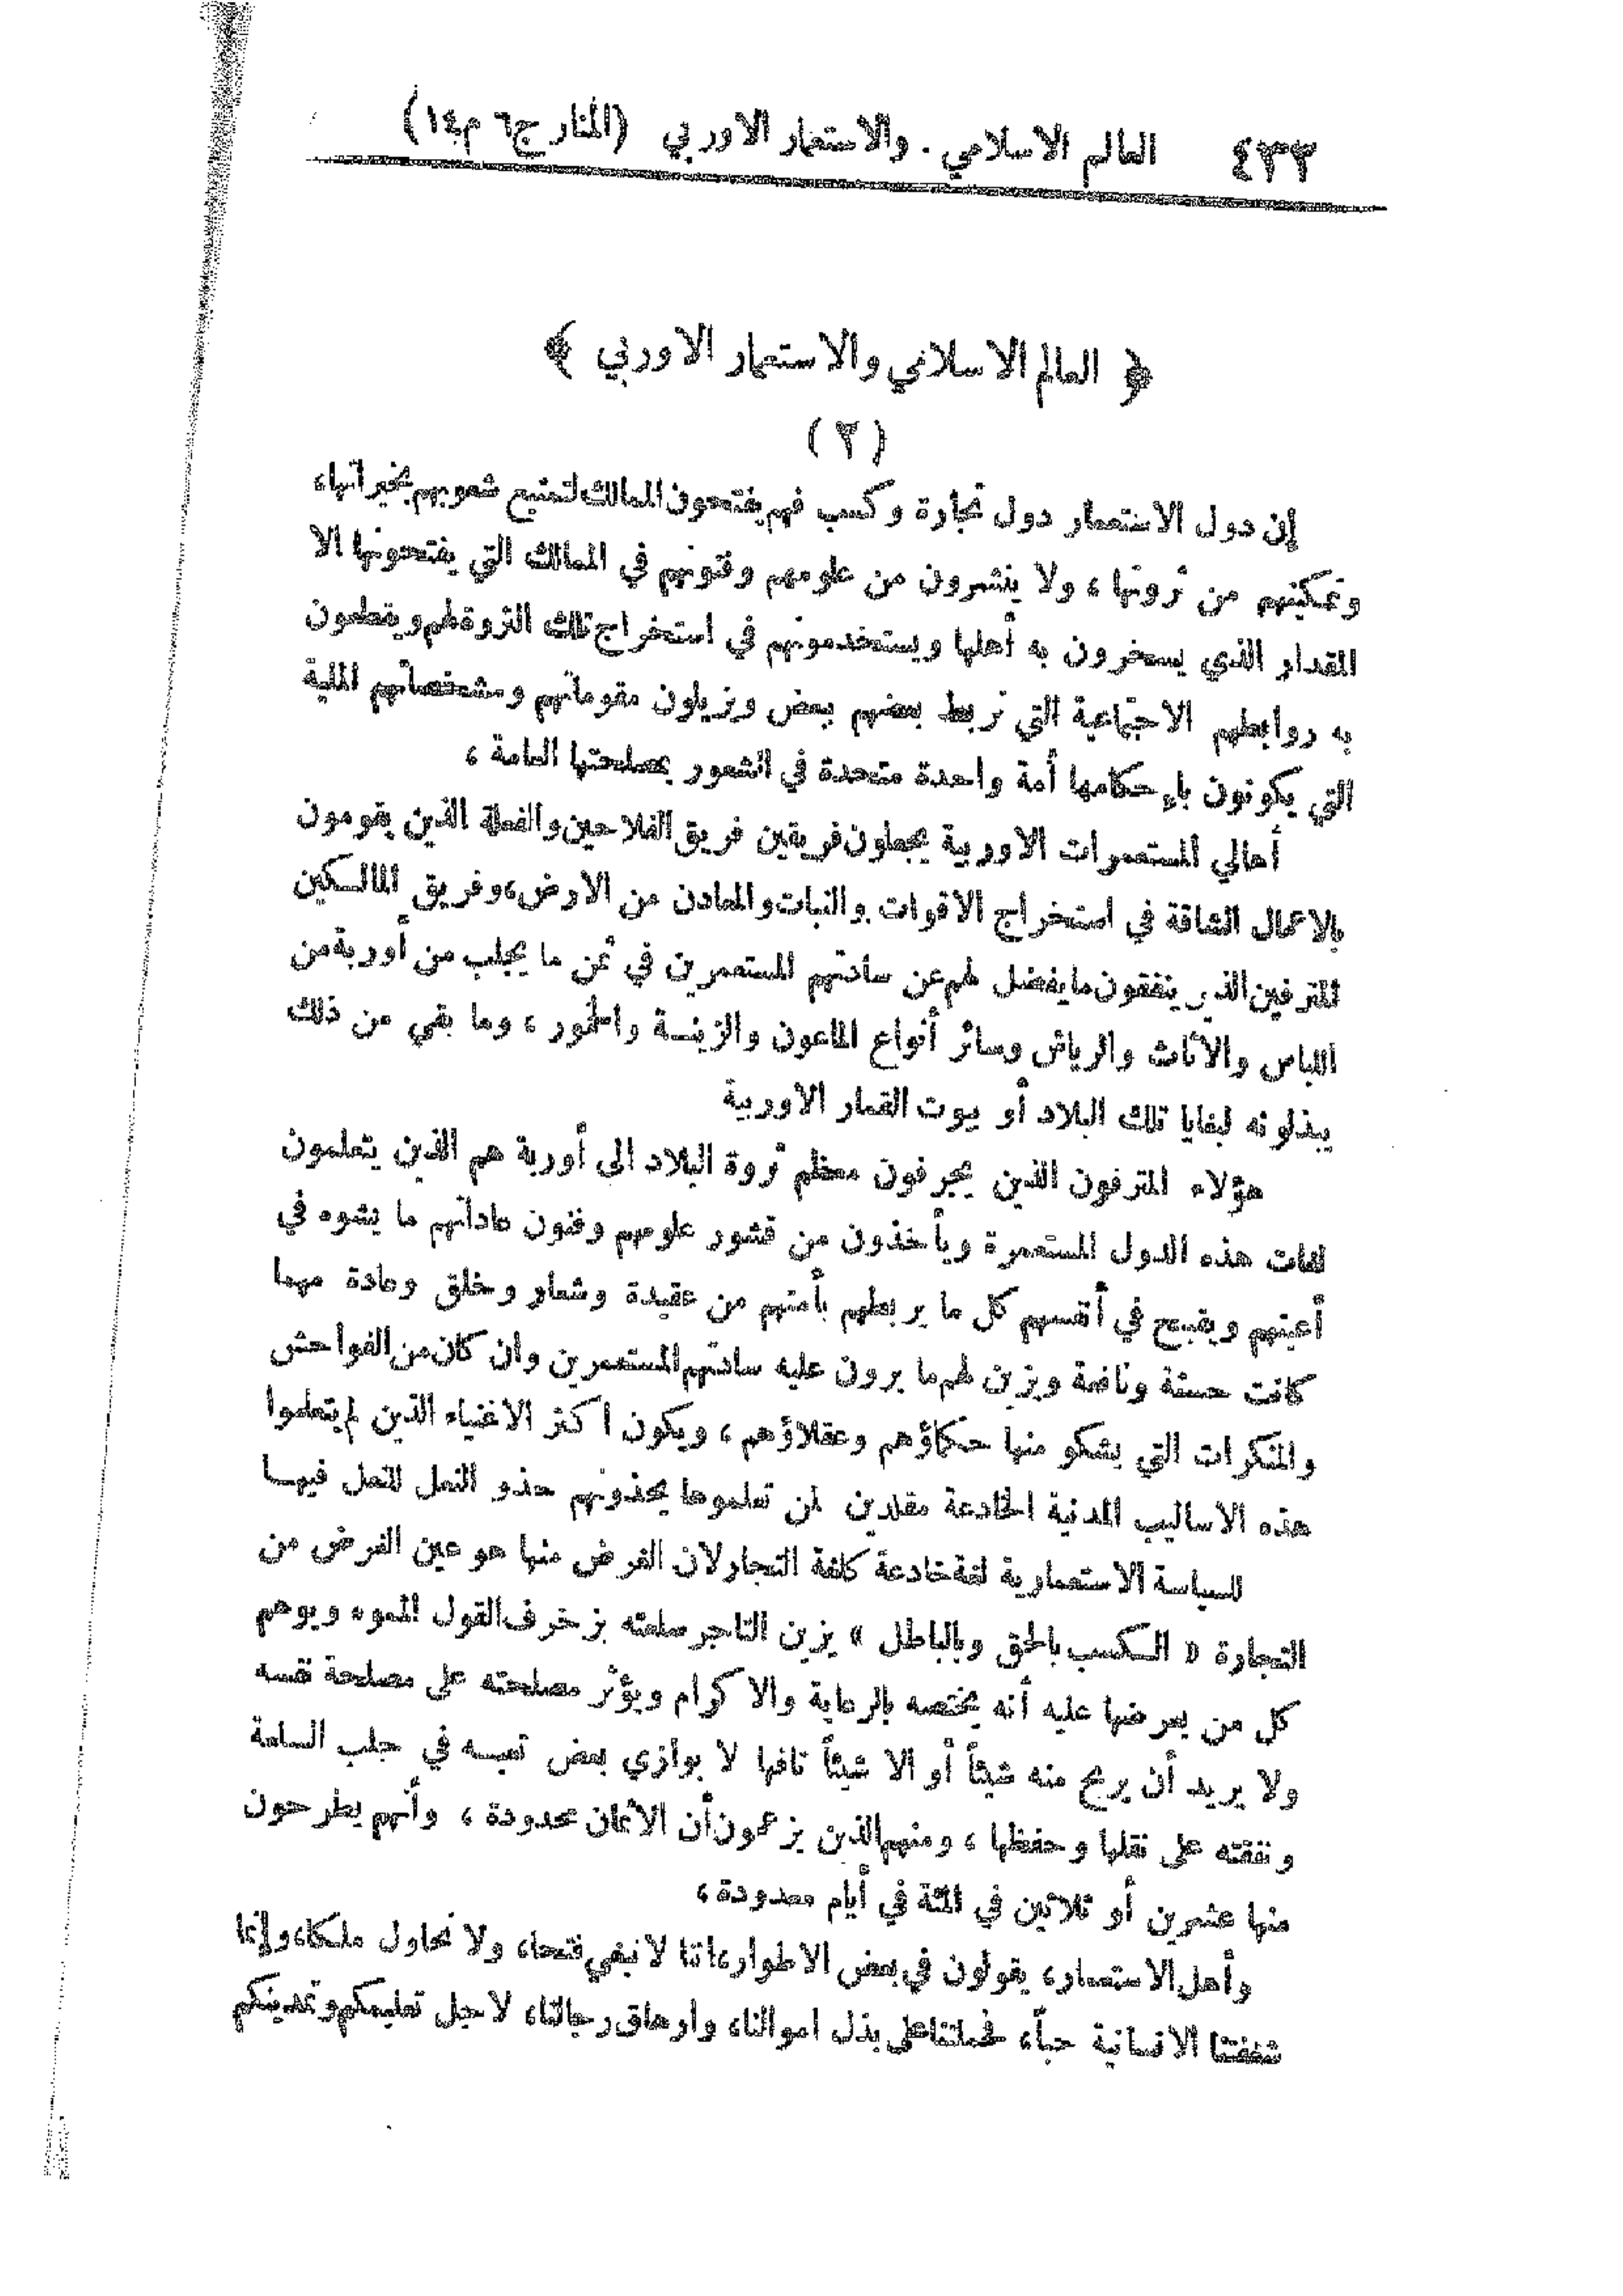 ٤٣٣ العالم الاسلامي . والاستعمار الاوربي (المنار ج٦ م١٤)
﴿ العالم الاسلامي والاستعمار الاوربي ﴾
( ٢ )
إن دول الاستعمار دول تجارة وكسب فهم يفتحون الممالك لتمتيع شعوبهم بخيراتها،
وتمكينهم من ثروتها ، ولا ينشرون من علومهم وفنونهم في الممالك التي يفتحونها الا
المقدار الذي يسخرون به أهلها ويستخدمونهم في استخراج تلك الثروة لهم ويقطعون
به روابطهم الاجتماعية التي تربط بعضهم ببعض ويزيلون مقوماتهم ومشخصاتهم الملية
التي يكونون بإحكامها أمة واحدة متحدة في الشعور بمصلحتها العامة ،
أهالي المستعمرات الاوربية يجعلون فريقين فريق الفلاحين والفعلة الذين يقومون
بالاعمال الشاقة في استخراج الاقوات والنبات والمعادن من الارض، وفريق المالكين
المترفين الذين ينفقون ما يفضل لهم عن سادتهم المستعمرين في ثمن ما يجلب من أوربة من
اللباس والأثاث والرياش وسائر أنواع الماعون والزينة والخمور ، وما بقي من ذلك
يبذلونه لبغايا تلك البلاد أو بيوت القمار الاوربية
هؤلاء المترفون الذين يجرفون معظم ثروة البلاد الى أوربة هم الذين يتعلمون
لغات هذه الدول المستعمرة ويأخذون من قشور علومهم وفنون عاداتهم ما يشوه في
أعينهم ويقبح في أنفسهم كل ما يربطهم بأمتهم من عقيدة وشعار وخلق وعادة مهما
كانت حسنة ونافعة ويزين لهم ما يرون عليه سادتهم المستعمرين وان كان من الفواحش
والمنكرات التي يشكو منها حكماؤهم وعقلاؤهم ، ويكون أكثر الاغنياء الذين لم يتعلموا
هذه الاساليب المدنية الخادعة مقلدين لمن تعلموها يحذونهم حذو النعل للنعل فيها
للسياسة الاستعمارية لغة خادعة كلغة التجار لان الغرض منها هو عين الغرض من
التجارة « الكسب بالحق وبالباطل » يزين التاجر سلعته بزخرف القول المموه ويوهم
كل من يعرضها عليه أنه يختصه بالرعاية والاكرام ويؤثر مصلحته على مصلحة نفسه
ولا يريد أن يربح منه شيئاً أو الا شيئاً تافها لا يوازي بعض تعبه في جلب السلعة
ونفقته على نقلها وحفظها ، ومنهم الذين يزعمون أن الأثمان محدودة ، وأنهم يطرحون
منها عشرين أو ثلاثين في المئة في أيام معدودة ،
وأهل الاستعمار، يقولون في بعض الاطوار، اننا لا نبغي فتحا، ولا نحاول ملكا، وإنما
شغفتنا الانسانية حباً، فحملتنا على بذل اموالنا، وارهاق رجالنا، لاجل تعليمكم وتمدينكم